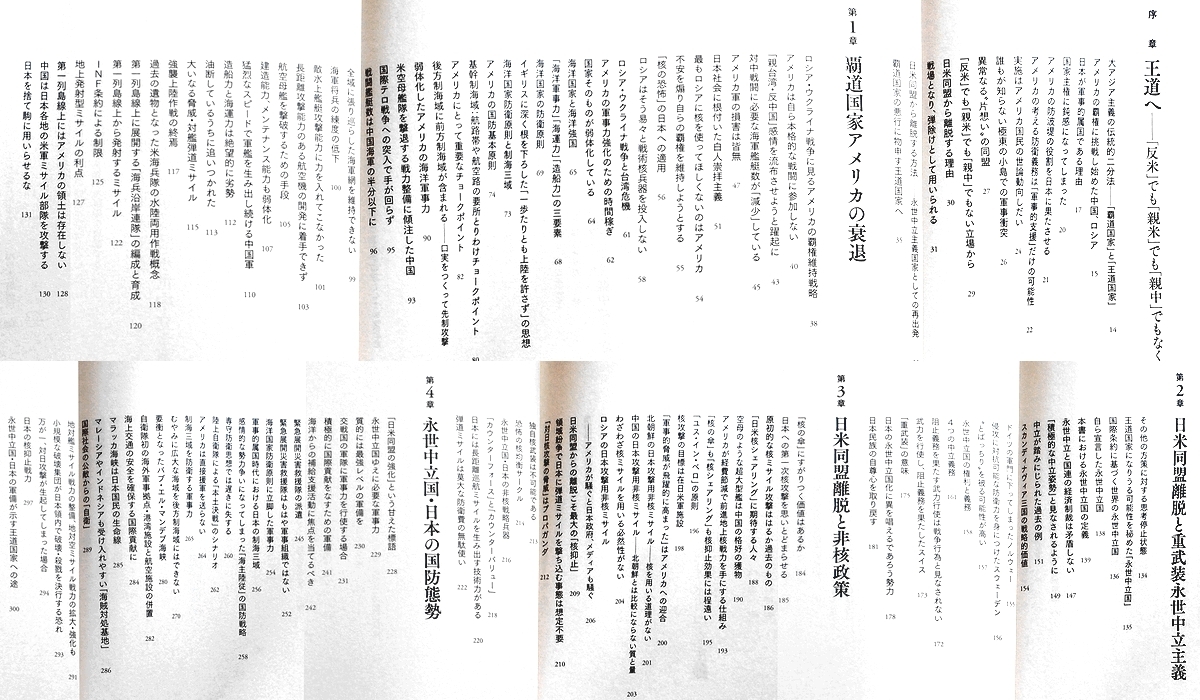 序章
王道へ——「反米」でも「親米」でも「親中」でもなく
大アジア主義の伝統的二分法——「覇道国家」と「王道国家」 14
アメリカの覇権に挑戦し始めた中国、ロシア 15
日本が軍事的属国である理由 17
国家主権に鈍感になってしまった 20
アメリカの防波堤の役割を日本に果たさせる 21
アメリカの考える防衛義務は「軍事的支援」だけの可能性 22
実施はアメリカ国民の世論動向しだい 24
誰もが知らない極東の小島での軍事衝突 26
異常なる“片想い”の同盟 27
「反米」でも「親米」でも「親中」でもない立場から 29
日米同盟から離脱する理由 30
戦場となり、弾除けとして用いられる 31
日米同盟から離脱する方法
永世中立主義国家としての再出発
覇道国家の愚行に物申す王道国家へ 35
第1章
覇道国家アメリカの衰退
ロシア・ウクライナ戦争に見るアメリカの覇権維持戦略 38
アメリカは自ら本格的な戦闘に参加しない 40
「親台湾・反中国」感情を流布させようと躍起に 43
対中戦闘に必要な海軍艦艇数が「減少」している 45
アメリカ軍の損害は皆無 47
日本社会に根付いた白人崇拝主義 51
最もロシアに核を使ってほしくないのはアメリカ 54
不安を煽り自らの覇権を維持しようとする 55
「核の恐怖」の日本への適用 56
ロシアはそう簡単には戦術核兵器を投入しない 58
ロシア・ウクライナ戦争と台湾危機 61
アメリカ軍事力強化のための時間稼ぎ 62
国家そのものが弱体化している 64
海洋国家と海洋強国 65
「海洋軍事力」「海運力」「造船力」の三要素 68
海洋国家の防衛原則 69
イギリスに深く根を下ろした「一歩たりとも上陸を許さず」の思想
海洋国家防衛原則と制海三域 73
アメリカの国防基本原則 74
基幹制海域・航路帯や航空路の要所とりわけチョークポイント
アメリカにとって重要なチョークポイント 82
後方制海域に前方制海域が含まれる——口実をつくって先制攻撃
弱体化したアメリカの海洋軍事力 90
米空母艦隊を撃退する戦力整備に傾注した中国 93
国際テロ戦争への突入で手が回らず 95
戦闘艦艇数は中国海軍の半分以下に 96
全域に張り巡らした海軍網を維持できない 99
海軍将兵の練度の低下 100
敵水上艦艇攻撃能力に力を入れてこなかった 101
長距離攻撃能力のある航空機の開発に着手できず 103
航空母艦を撃破するための手段 105
建造能力、メンテナンス能力も弱体化 107
猛烈なスピードで軍艦を生み出し続ける中国軍 110
造船力と海運力は絶望的に劣勢 112
油断しているうちに追いつかれた 113
大いなる脅威・対艦弾道ミサイル 115
強襲上陸作戦の終焉 117
過去の遺物となった米海兵隊の水陸両用作戦概念 118
第一列島線上に展開する「海兵沿岸連隊」の編成と育成 120
第一列島線上から発射するミサイル 122
INF条約による制限 125
地上発射型ミサイルの利点 127
第一列島線上にはアメリカの領土は存在しない 128
中国は日本各地の米軍ミサイル部隊を攻撃する 130
日本を捨て駒に用いらせるな 131
第2章
日米同盟離脱と重武装永世中立主義
その他の方策に対する思考停止状態 134
王道国家になりうる可能性を秘めた「永世中立国」 135
国際条約に基づく世界の永世中立国 136
自ら宣言した永世中立国 138
本書における永世中立国の定義 139
永世中立国と国連の経済制裁は矛盾しない 147
「積極的な中立姿勢」と見なされるように 149
中立が踏みにじられた過去の例 151
スカンディナヴィア三国の戦略的価値 154
ドイツの軍門に下ってしまったノルウェー 155
侵攻に対抗可能な防衛力を身につけたスウェーデン 156
永世中立国の権利と義務
四つの中立義務
阻止義務を果たす武力行使は戦争行為と見なされない 172
武力を行使し、阻止義務を果たしたスイス 173
「重武装」の意味 175
日本の永世中立国化に異を唱えるであろう勢力 178
日本民族の自尊心を取り戻す 181
第3章
日米同盟離脱と非核政策
「核の傘」にすがりつく価値はあるか 184
日本への第一次核攻撃を思いとどまらせる 185
原初的な核ミサイル攻撃ははるか過去のもの 186
「日米核シェアリング」に期待する人々 188
空母のような超大型艦は中国の格好の獲物 190
アメリカが経費節減で前進地上核戦力を手にする仕組み 193
「核の傘」も「核シェアリング」も核抑止効果には程遠い 195
「ユス・イン・ベロ」の原則 196
核攻撃の目標は在日米軍施設 198
「軍事的脅威が飛躍的に高まった」はアメリカへの迎合 200
北朝鮮の日本攻撃用非核ミサイル——核を用いる道理がない 201
中国の日本攻撃用非核ミサイル——北朝鮮とは比較にならない質と量 203
わざわざ核ミサイルを用いる必然性がない 204
ロシアの日本攻撃用非核ミサイル
——アメリカが騒ぐと日本政府、メディアも騒ぐ 206
日米同盟からの離脱こそ最大の「核抑止」 209
領域紛争で日本に弾道ミサイルを撃ち込む事態は想定不要 210
「対日核攻撃の脅威」はプロパガンダ 212
独自核武装が不可能な理由
恐怖の核均衡セオリー
永世中立国・日本の非核戦略兵器 216
「カウンターフォース」と「カウンターバリュー」 218
日本には長距離巡航ミサイルを生み出す技術力がある 220
弾道ミサイル防衛は莫大な防衛費の無駄使い 222
第4章
永世中立国・日本の国防態勢
「日米同盟の強化」という甘えた標語 228
永世中立国ゆえに必要な軍事力 229
質的には最強レベルの軍備を 230
交戦国の軍隊に軍事力を行使する場合 231
積極的に国際貢献をなすための軍備 241
海洋からの補給支援活動に焦点を当てるべき 242
緊急展開災害救援隊の派遣 245
緊急展開災害救援隊はもはや軍事組織ではない 252
海洋国家防衛原則に立脚した軍事力
軍事的属国時代における日本の制海三域 256
感情的な努力争いになってしまった「海主陸従」の国防戦略 258
専守防衛思想では遅きに失する
陸上自衛隊による「本土決戦」のシナリオ 262
アメリカは直接援軍を送らない
制海三域を防衛する軍事力 267
むやみに広大な海域を後方制海域にはできない 270
要衝となったバブ・エル・マンデブ海峡 280
自衛隊初の海外軍事拠点・港湾施設と航空施設の併置 282
海上交通の安全を確保する国際貢献に 284
マラッカ海峡は日本国民の生命線 285
マレーシアやインドネシアも受け入れやすい「海賊対処基地」 286
国際社会の公敵からの「自衛」 289
地対艦ミサイル戦力の整備、地対空ミサイル戦力の拡大・強化も 291
小規模な破壊集団が日本領内で破壊・殺戮を決行する恐れ 293
万が一、対日侵攻軍が生じてしまった場合 294
日本の核抑止戦力 297
永世中立国・日本の軍備が示す王道国家への途 300